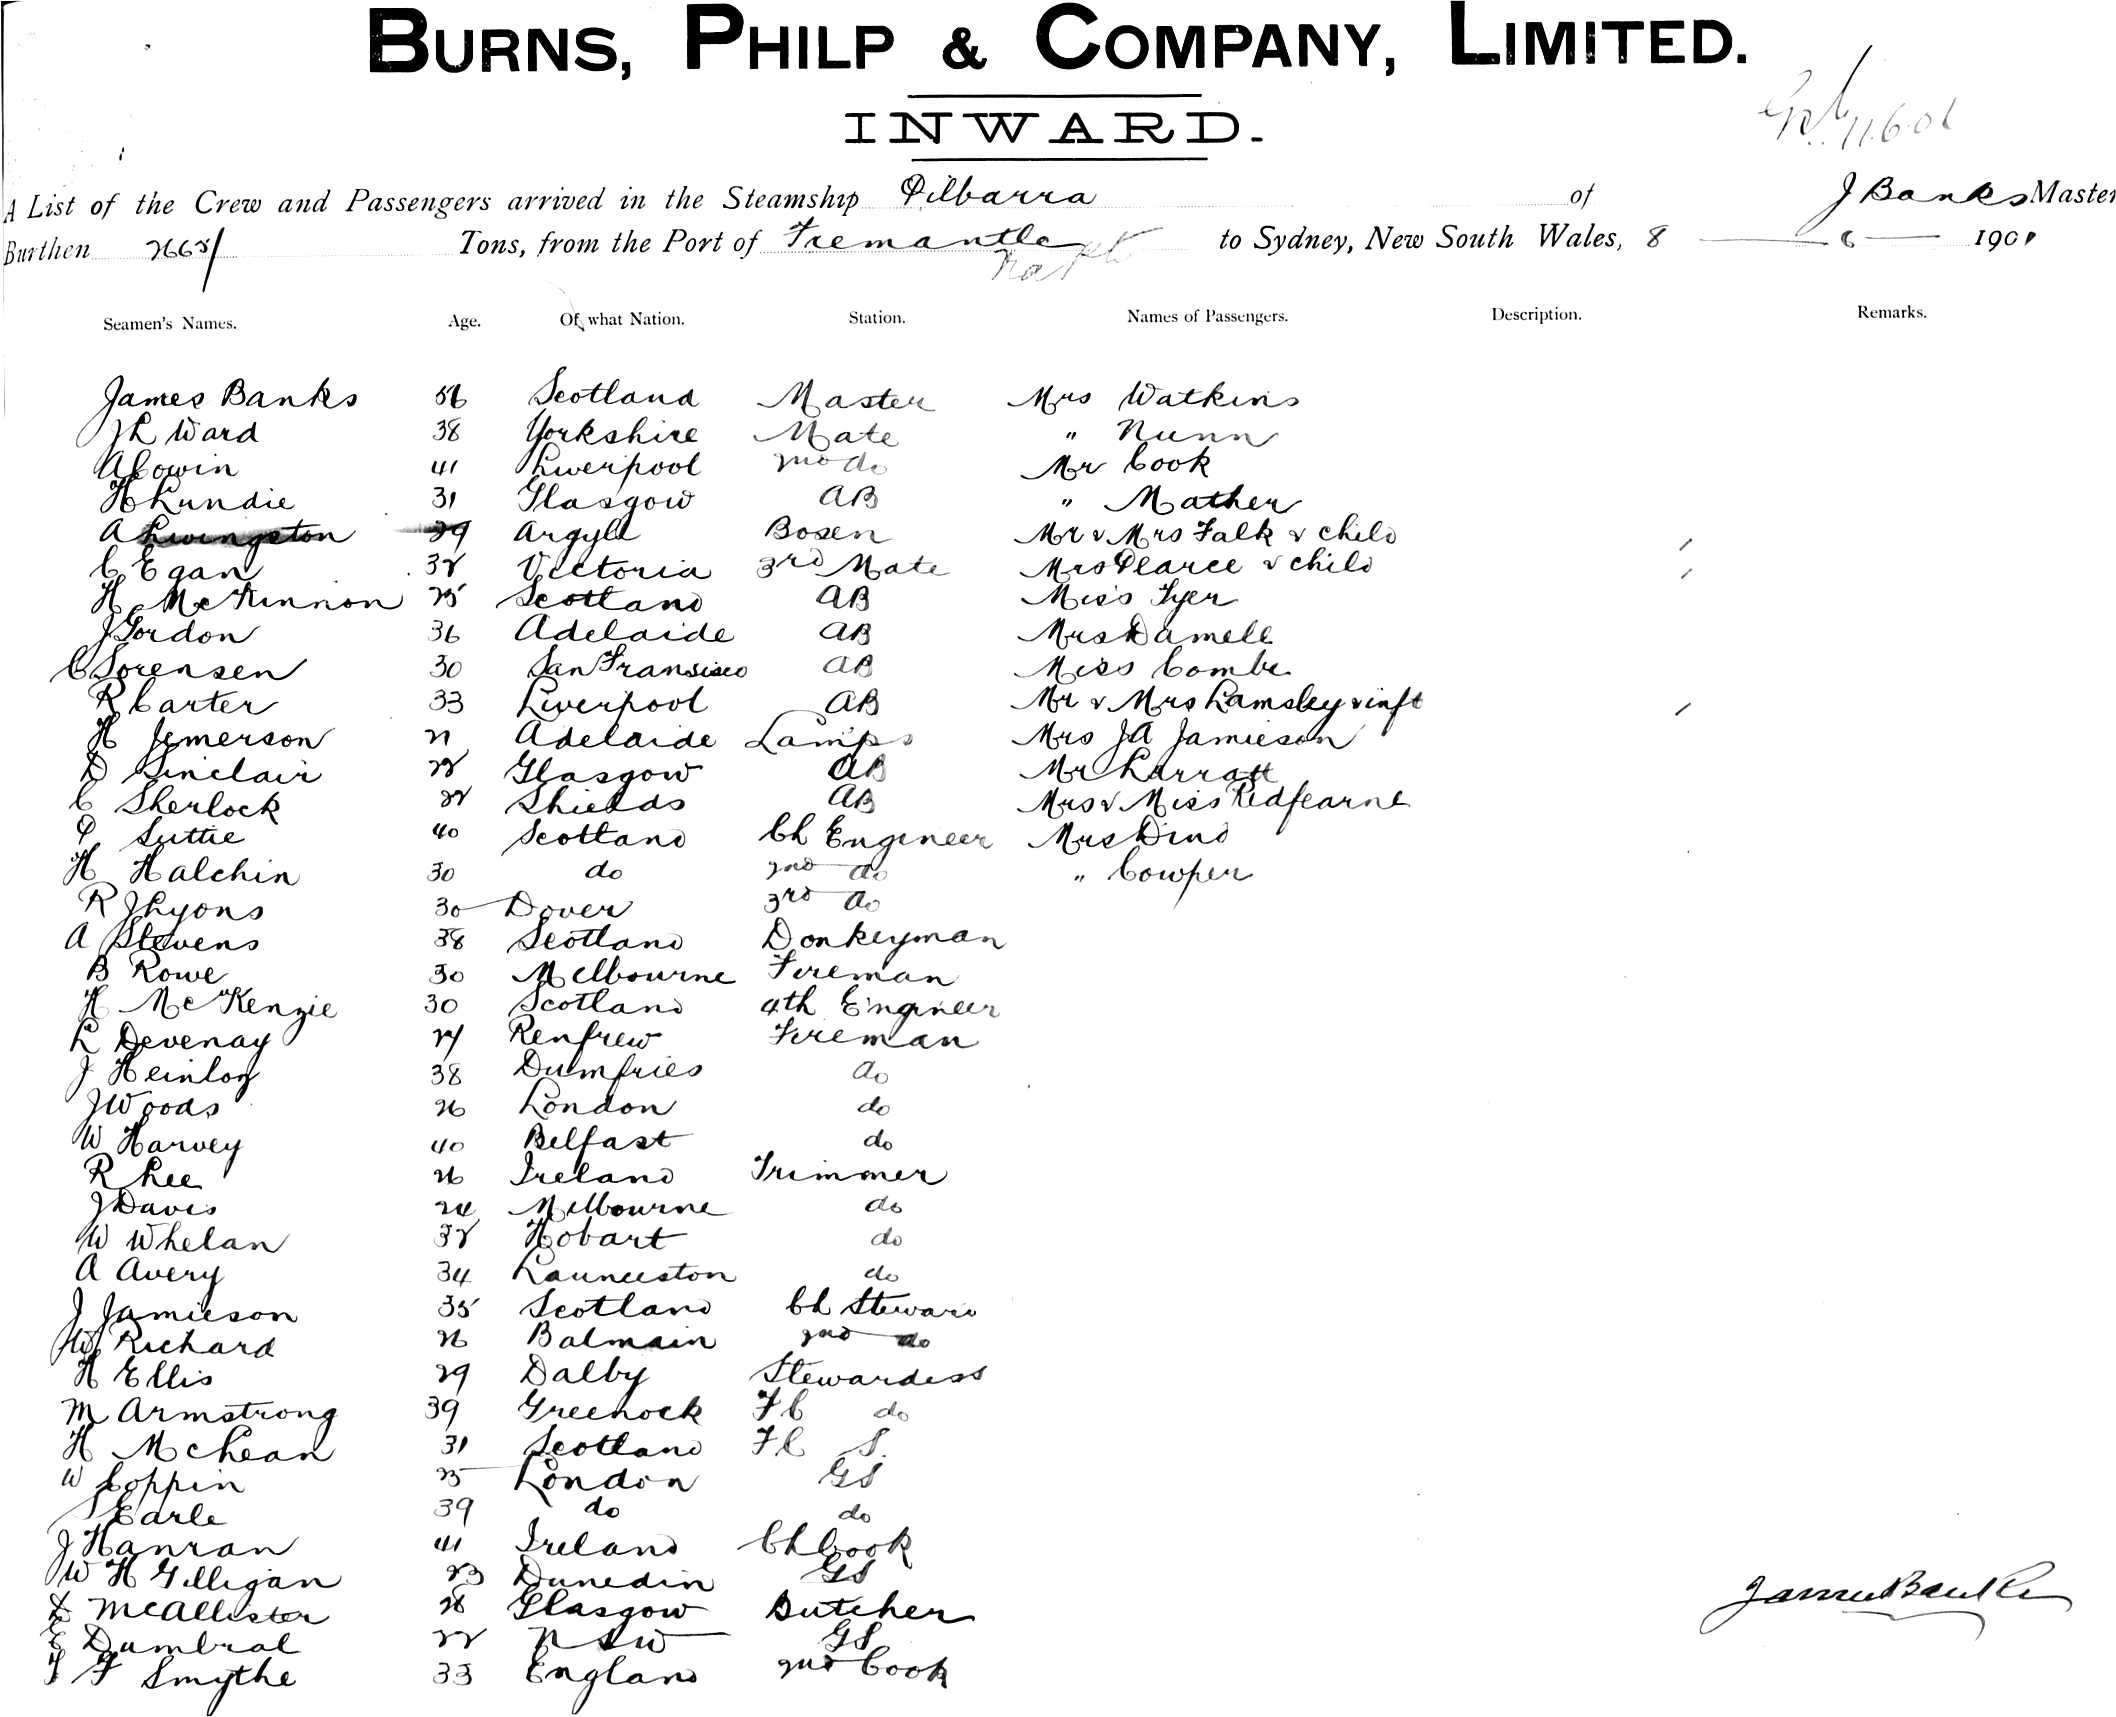 BURNS, PHILP & COMPANY, LIMITED.
INWARD.
11.6.01
A List of the Crew and Passengers arrived in the Steamship Pilbarra of J Banks Master
Burthen 2663/ Tons, from the Port of Fremantle to Sydney, New South Wales, 8 6 1901
Seamen's Names. Age. Of what Nation. Station. Names of Passengers. Description. Remarks.
James Banks 56 Scotland Master Mrs Watkins
J L Ward 38 Yorkshire Mate " Nunn
A Cowin 41 Liverpool 2nd do Mr Cook
H Lundie 31 Glasgow AB " Mather
A Livingston 39 Argyll Bosen Mr & Mrs Falk & child
C Egan 32 Victoria 3rd Mate Mrs Pearce & child
H McKinnon 25 Scotland AB Miss Tyer
J Gordon 36 Adelaide AB Mrs Damell
C Sorensen 30 San Fransisco AB Miss Combe
R Carter 33 Liverpool AB Mr & Mrs Lamsley & inft
H Jemerson 21 Adelaide Lamps Mrs JA Jamieson
D Sinclair 28 Glasgow AB Mr Larratt
C Sherlock 22 Shields AB Mrs & Miss Redfearne
P Suttie 40 Scotland Ch Engineer Mrs Dind
H Halchin 30 do 2nd do " Cowper
R J Lyons 30 Dover 3rd do
A Stevens 38 Scotland Donkeyman
B Rowe 30 Melbourne Fireman
H McKenzie 30 Scotland 4th Engineer
L Devenay 27 Renfrew Fireman
J Heinloy 38 Dumfries do
J Woods 26 London do
W Harvey 40 Belfast do
R Lee 26 Ireland Trimmer
J Davis 24 Melbourne do
W Whelan 32 Hobart do
A Avery 34 Launceston do
J Jamieson 35 Scotland Ch Steward
W Richard 26 Balmain 2nd do
H Ellis 29 Dalby Stewardess
M Armstrong 39 Greenock F C do
H McLean 31 Scotland F C S.
W Coppin 25 London GS
S Earle 39 do do
J Hanran 41 Ireland Ch Cook
W H Gilligan 23 Dunedin GS
McAllister 28 Glasgow Butcher
E Dumbral 22 NSW GS
T F Smythe 33 England 2nd Cook
James Banks